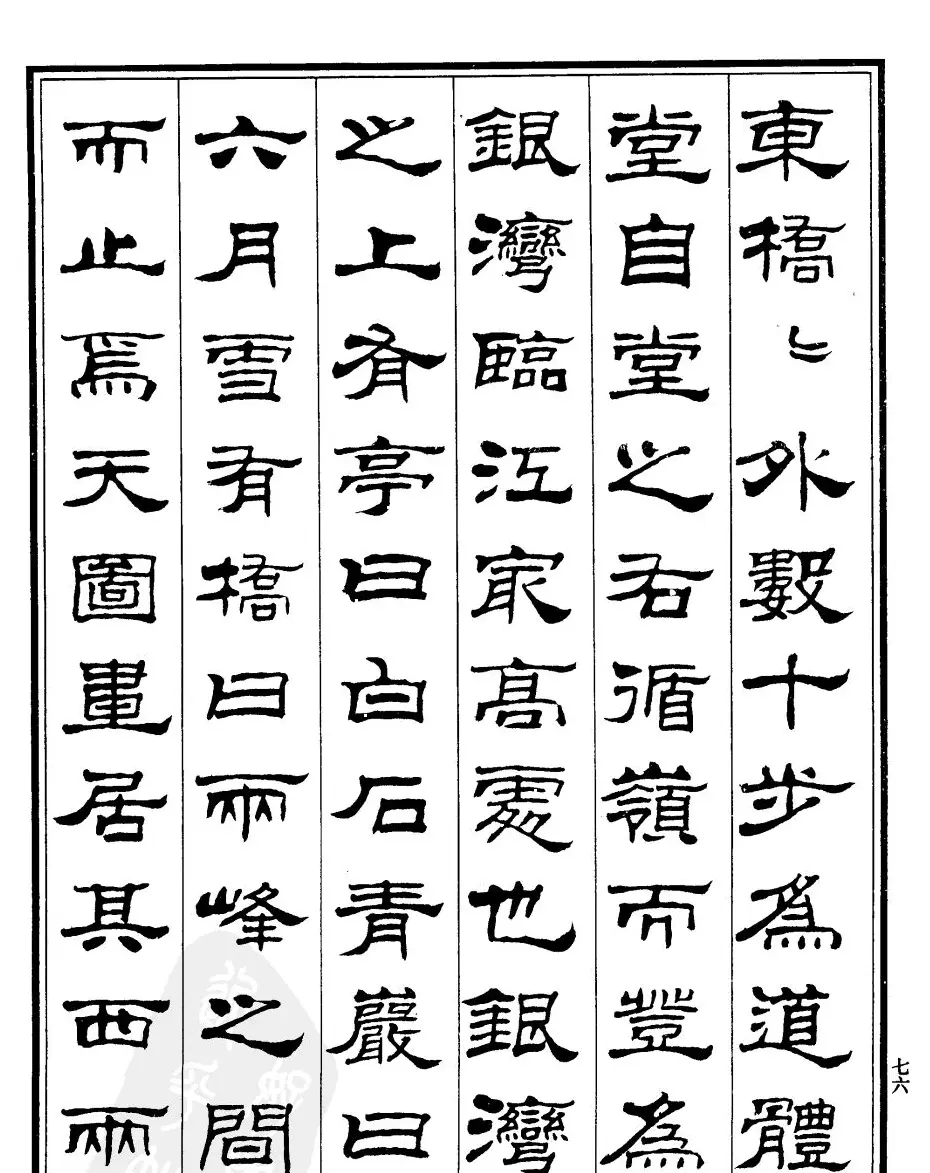 東橋〻外數十步為道體
堂自堂之右循嶺而登為
銀灣臨江冣高處也銀灣
之上有亭曰白石青巖曰
六月雪有橋曰兩峰之間
而止焉天圖畫居其西兩
七六